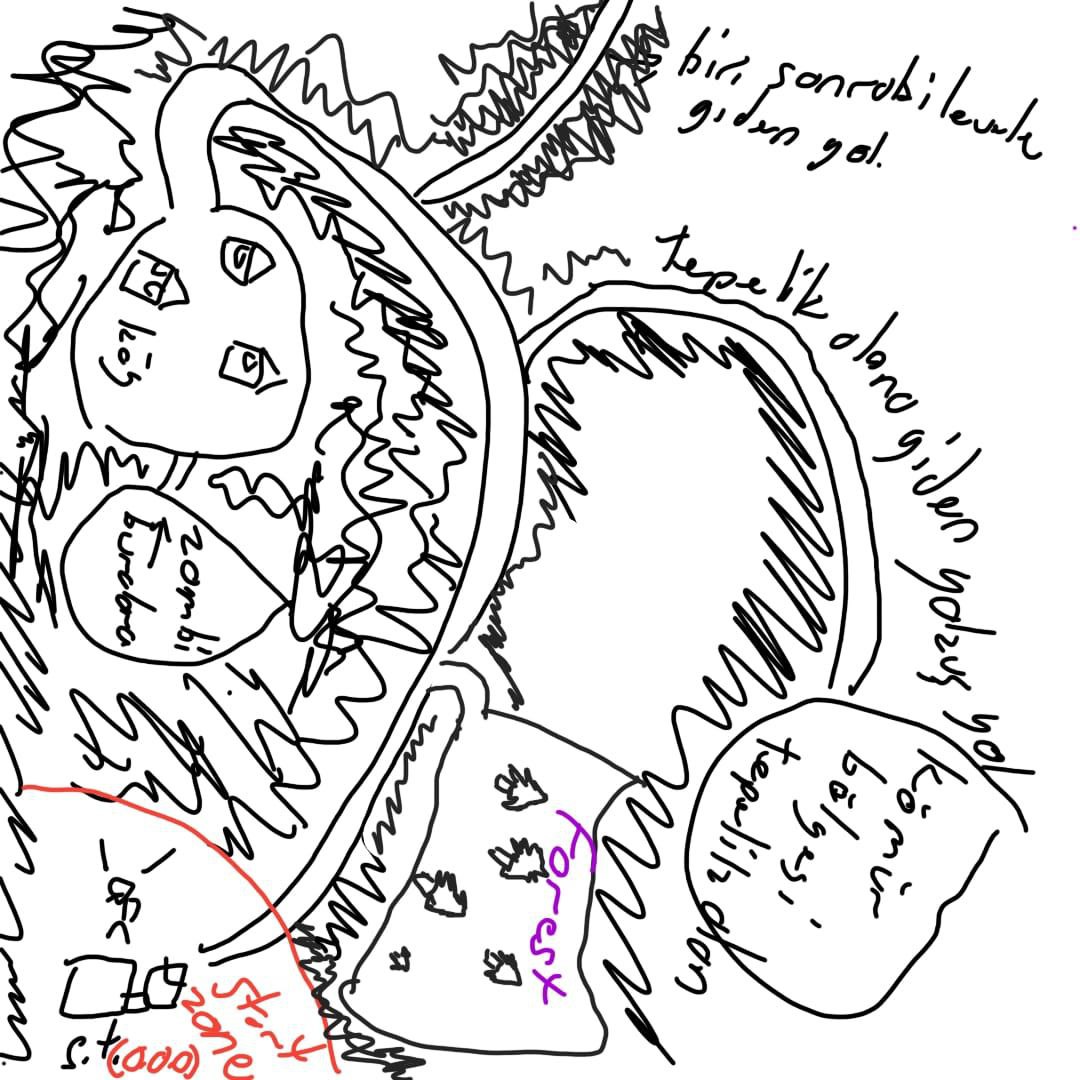 biri sonrabilevele
giden yol.
tepelik alana giden yalzış yol
köy
zombi
burdan
kömür
bölgesi
tepelik alan
Forest
Start
zone
(000)